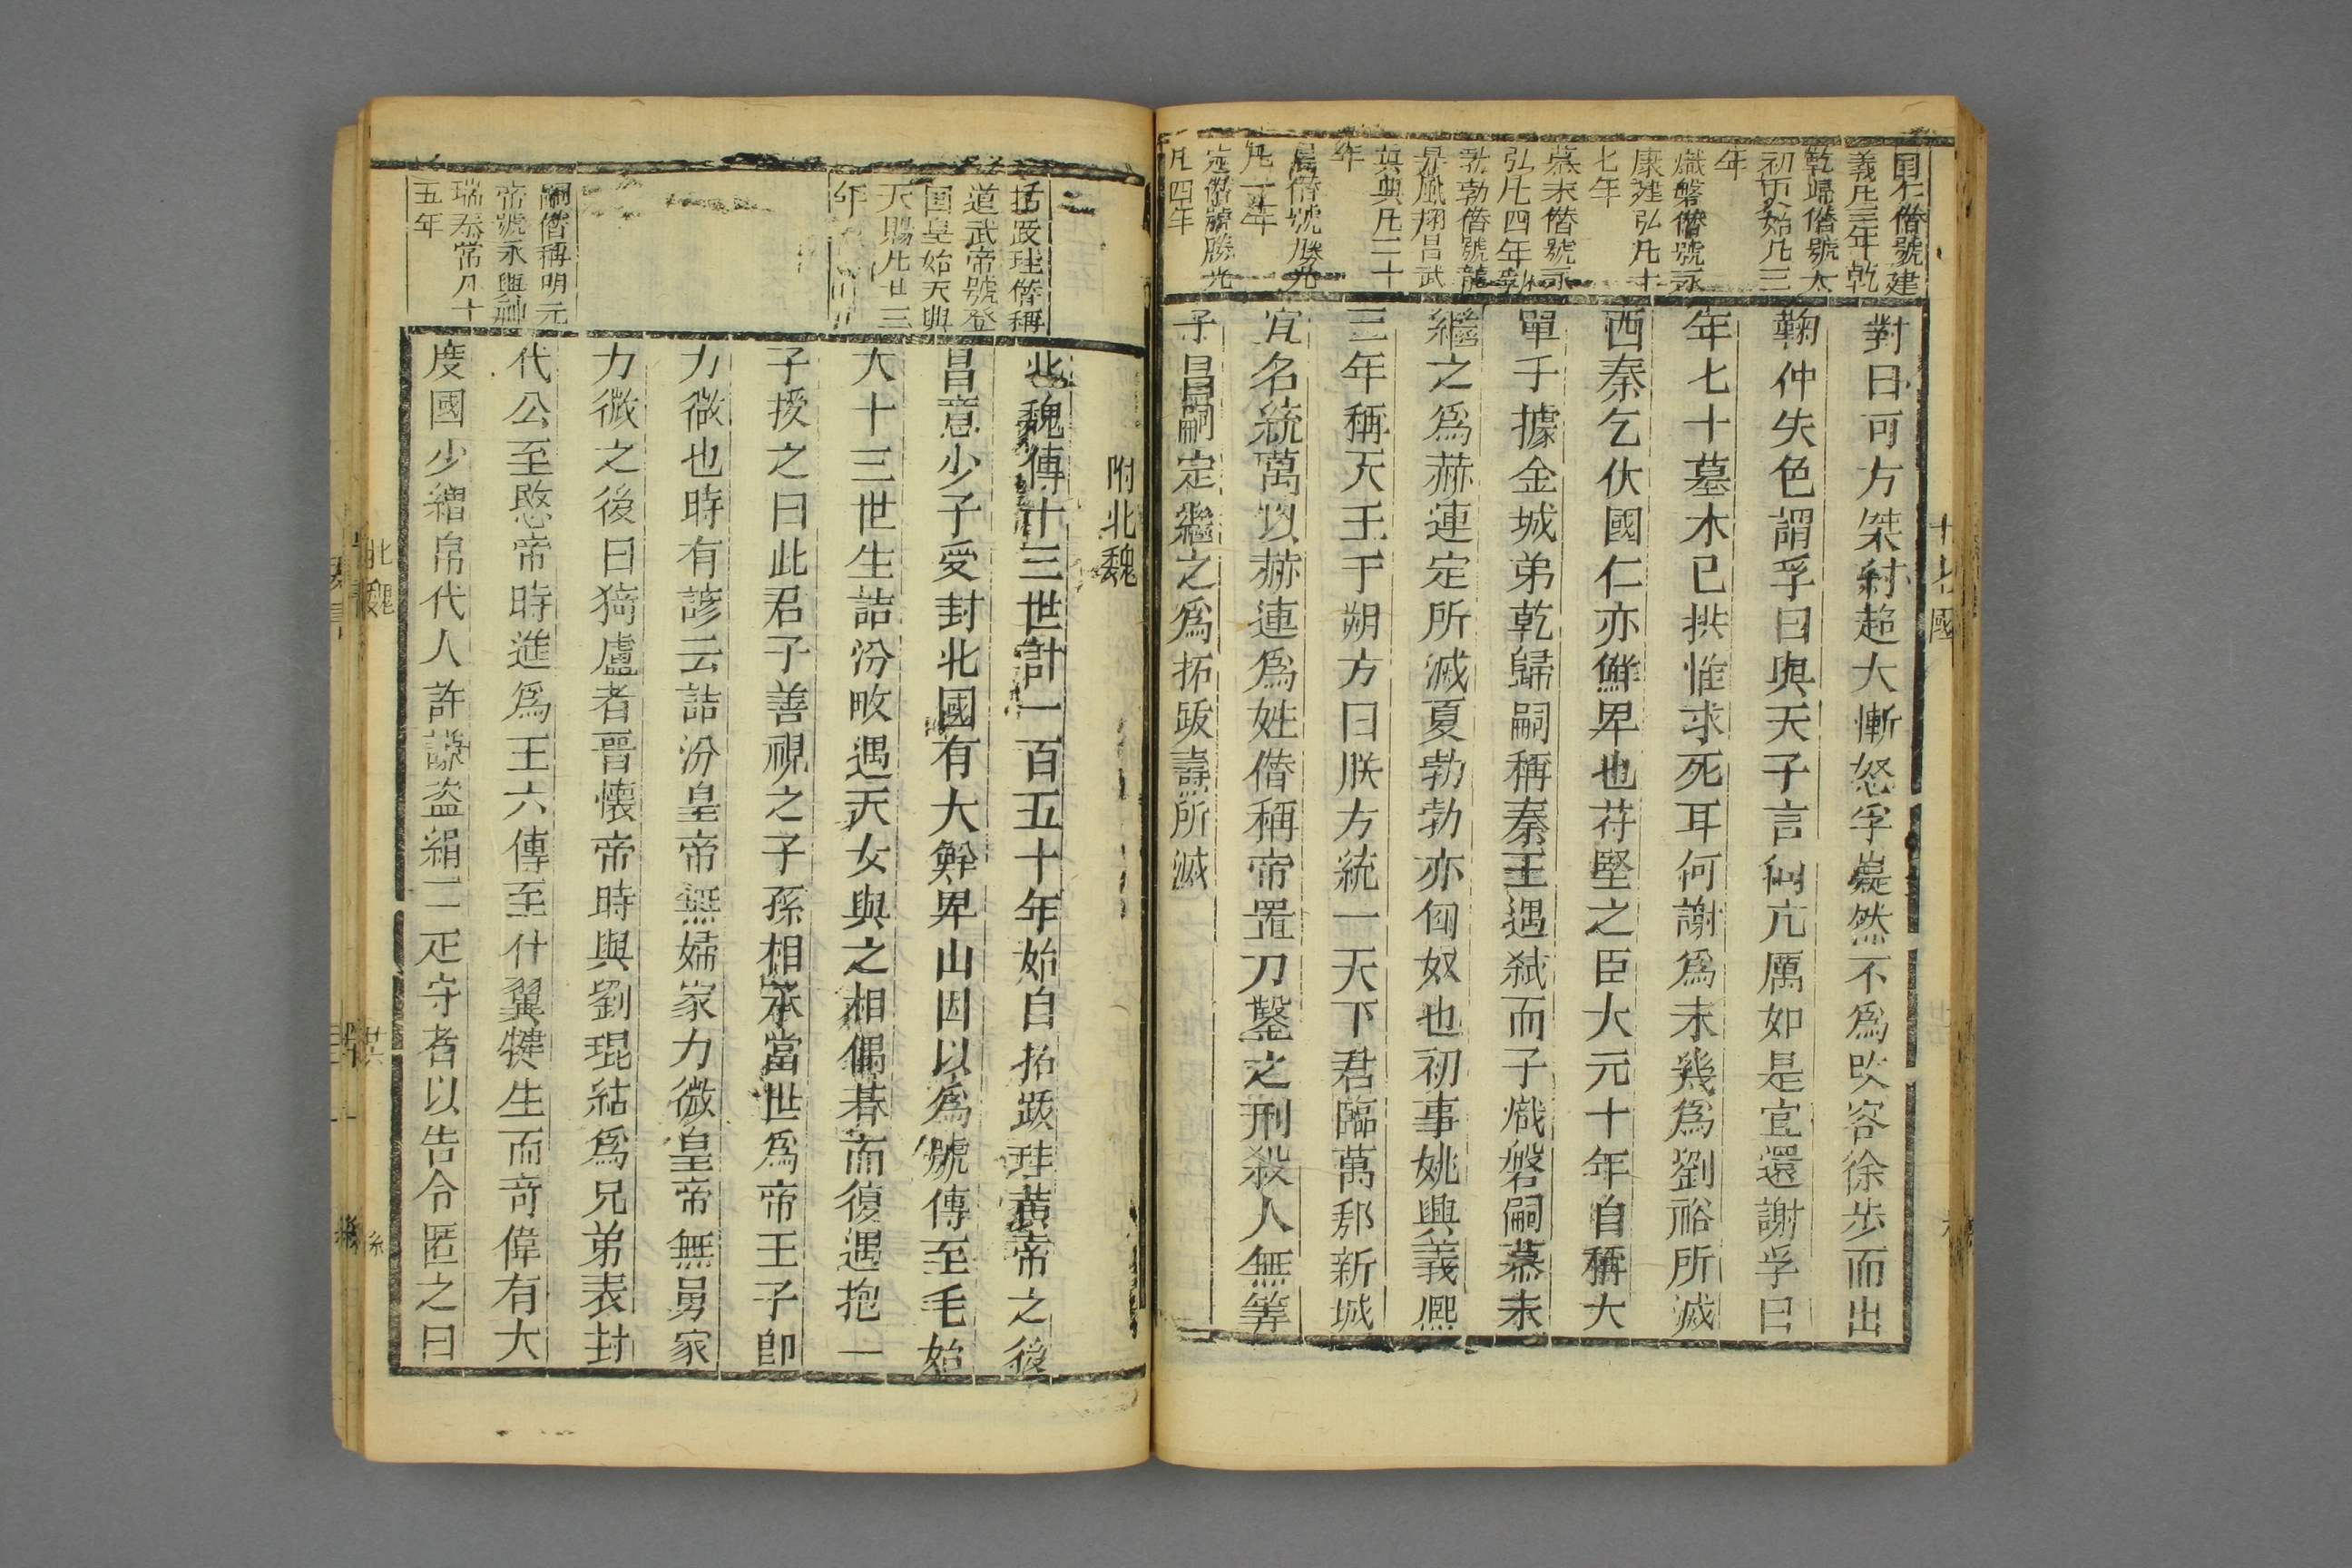 國仁僭號建
義凡三年乾
乾歸僭號太
初更始凡三
年
熾磐僭號永
康建弘凡十
七年
慕末僭號永
弘凡四年勃
勃勃僭號龍
昇鳳翔昌武
真興凡二十
年
昌僭號勝光
凡一年
定僭號勝光
凡四年
對曰可方桀紂超大慚怒孚㬥然不爲吹容徐步而出
鞠仲失色謂孚曰與天子言何亢厲如是宜還謝孚曰
年七十墓木已拱惟求死耳何謝爲未幾爲劉裕所滅
西秦乞伏國仁亦鮮卑也苻堅之臣大元十年自稱大
單于據金城弟乾歸嗣稱秦王遇弒而子熾磐嗣慕末
繼之爲赫連定所滅夏勃勃亦匈奴也初事姚興義熙
三年稱天王于朔方曰朕方統一天下君臨萬邦新城
宜名統萬以赫連爲姓僭稱帝置刀鑿之刑殺人無筭
子昌嗣定繼之爲拓跋壽所滅
十七國
附北魏
拓跋珪僭稱
道武帝號登
國皇始天興
天賜凡廿三
年
嗣僭稱明元
帝號永興神
瑞泰常凡十
五年
北魏傳十三世計一百五十年始自拓跋珪黃帝之後
昌意少子受封北國有大鮮卑山因以爲號傳至毛始
大十三世生詰汾畋遇天女與之相偶朞而復遇抱一
子授之曰此君子善視之子孫相承當世爲帝王子卽
力微也時有諺云詰汾皇帝無婦家力微皇帝無舅家
力微之後曰猗盧者晉懷帝時與劉琨結爲兄弟表封
代公至愍帝時進爲王六傳至什翼犍生而奇偉有大
度國少繒帛代人許謙盗絹二疋守者以告令匿之曰
北魏